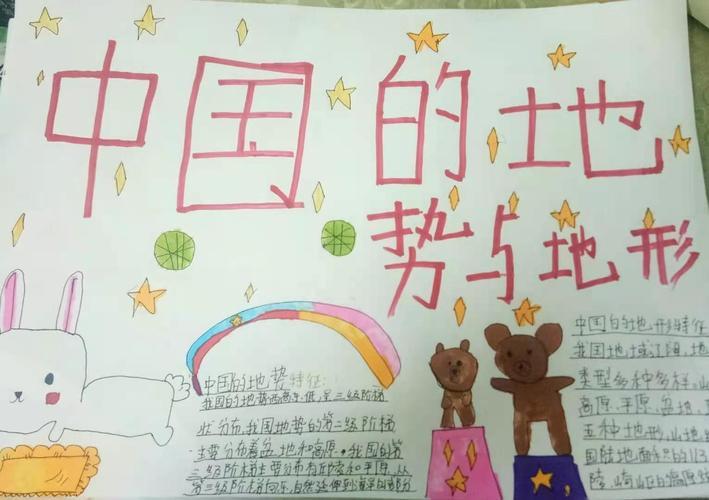 中国的地
势与地形
中国的地势特征:
我国的地势西高东低,呈三级阶梯
状分布,我国地势的第二级阶梯
主要分布着盆地和高原。我国的第
三级阶梯主要分布有丘陵和平原,从
第三级阶梯向东,自然延伸到海洋的部分
中国的地形特征
我国地域辽阔,地
类型多种多样,山
高原、平原、盆地、
五种地形,山地
国陆地面积的1/3
陵,崎岖的高原